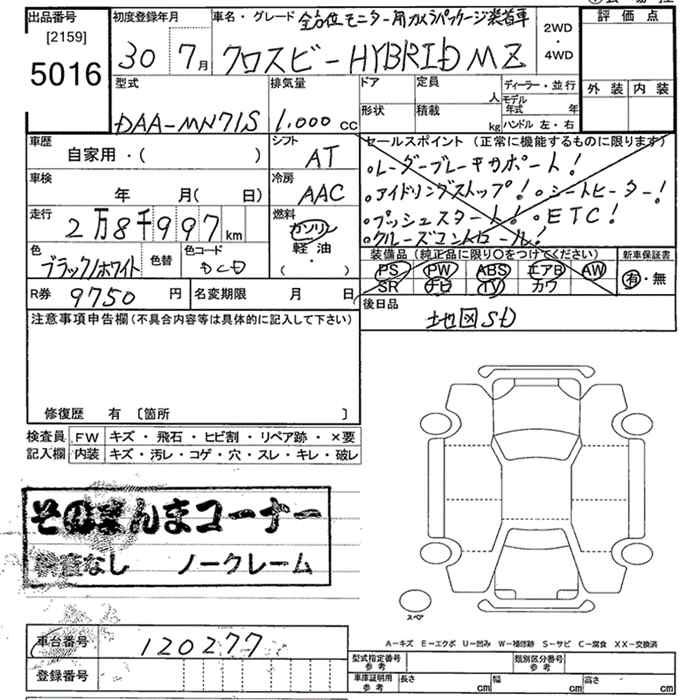 出品番号 初度登録年月 車名・グレード 全方位モニター用カメラパッケージ装着車 評価点
[2159]
5016 30 7月 クロスビーHYBRID MZ 2WD・4WD 外装 内装
型式 排気量 ドア 定員 人 ディーラー・並行
DAA-MN71S 1,000cc 形状 積載 kg モデル年式 年 ハンドル 左・右
車歴 シフト セールスポイント(正常に機能するものに限ります)
自家用・( ) AT ○レーダーブレーキサポート!
車検 冷房 ○アイドリングストップ! ○シートヒーター!
年 月( 日) AAC ○プッシュスタート! ○ETC!
走行 燃料 ○クルーズコントロール!
2万8千997km ガソリン・軽油・( )
色 色替 色コード 装備品(純正品に限り○をつけてください) 新車保証書
ブラック/ホワイト DCD PS PW ABS エアB AW 有・無
SR ナビ TV カワ
R券 9750円 名変期限 月 日 後日品
地図SD
注意事項申告欄(不具合内容等は具体的に記入して下さい)
修復歴 有 [箇所 ]
検査員 FW キズ・飛石・ヒビ割・リペア跡・×要
記入欄 内装 キズ・汚レ・コゲ・穴・スレ・キレ・破レ
そのまんまコーナー
なし ノークレーム
スペア
車台番号 120277
A-キズ E-エクボ U-凹み W-補修跡 S-サビ C-腐食 XX-交換済
登録番号 型式指定番号 参考 類別区分番号 参考
車庫証明用 参考 長さ cm 幅 cm 高さ cm